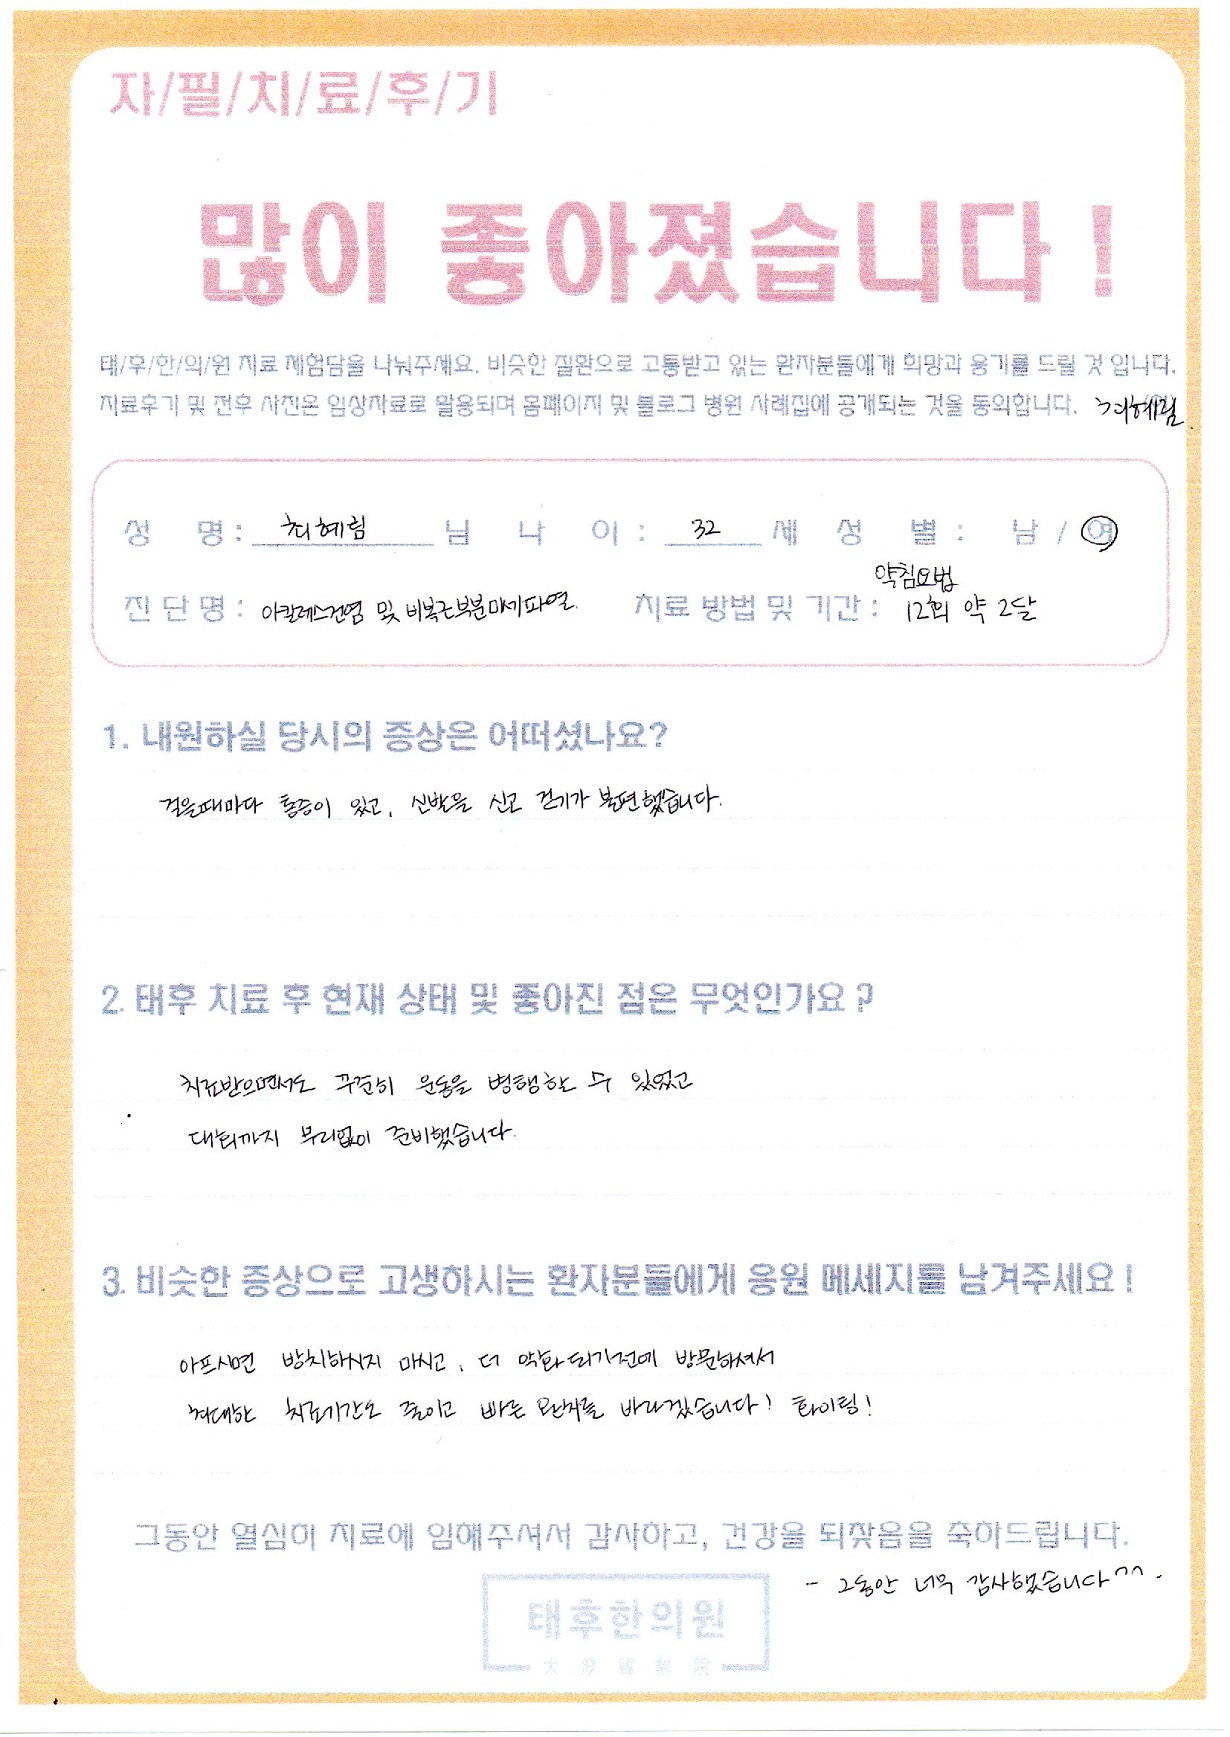 자/필/치/료/후/기
많이 좋아졌습니다!
태/후/한/의/원 치료 체험담을 나눠주세요. 비슷한 질환으로 고통받고 있는 환자분들에게 희망과 용기를 드릴 것 입니다.
치료후기 및 전후 사진은 임상자료로 활용되며 홈페이지 및 블로그 병원 사례집에 공개되는 것을 동의합니다. 최혜림
성 명 : 최혜림 님 나 이 : 32 세 성 별 : 남 / 여
약침요법
진 단 명 : 아킬레스건염 및 비복근부분미세파열. 치료 방법 및 기간 : 12회 약 2달
1. 내원하실 당시의 증상은 어떠셨나요?
걸을때마다 통증이 있고, 신발을 신고 걷기가 불편했습니다.
2. 태후 치료 후 현재 상태 및 좋아진 점은 무엇인가요?
치료받으면서도 꾸준히 운동을 병행할 수 있었고
대회까지 무리없이 준비했습니다.
3. 비슷한 증상으로 고생하시는 환자분들에게 응원 메세지를 남겨주세요!
아프시면 방치하시지 마시고, 더 악화되기전에 방문하셔서
최대한 치료기간도 줄이고 빠른 완치를 바라겠습니다! 화이팅!
그동안 열심히 치료에 임해주셔서 감사하고, 건강을 되찾음을 축하드립니다.
- 그동안 너무 감사했습니다^^.
태후한의원